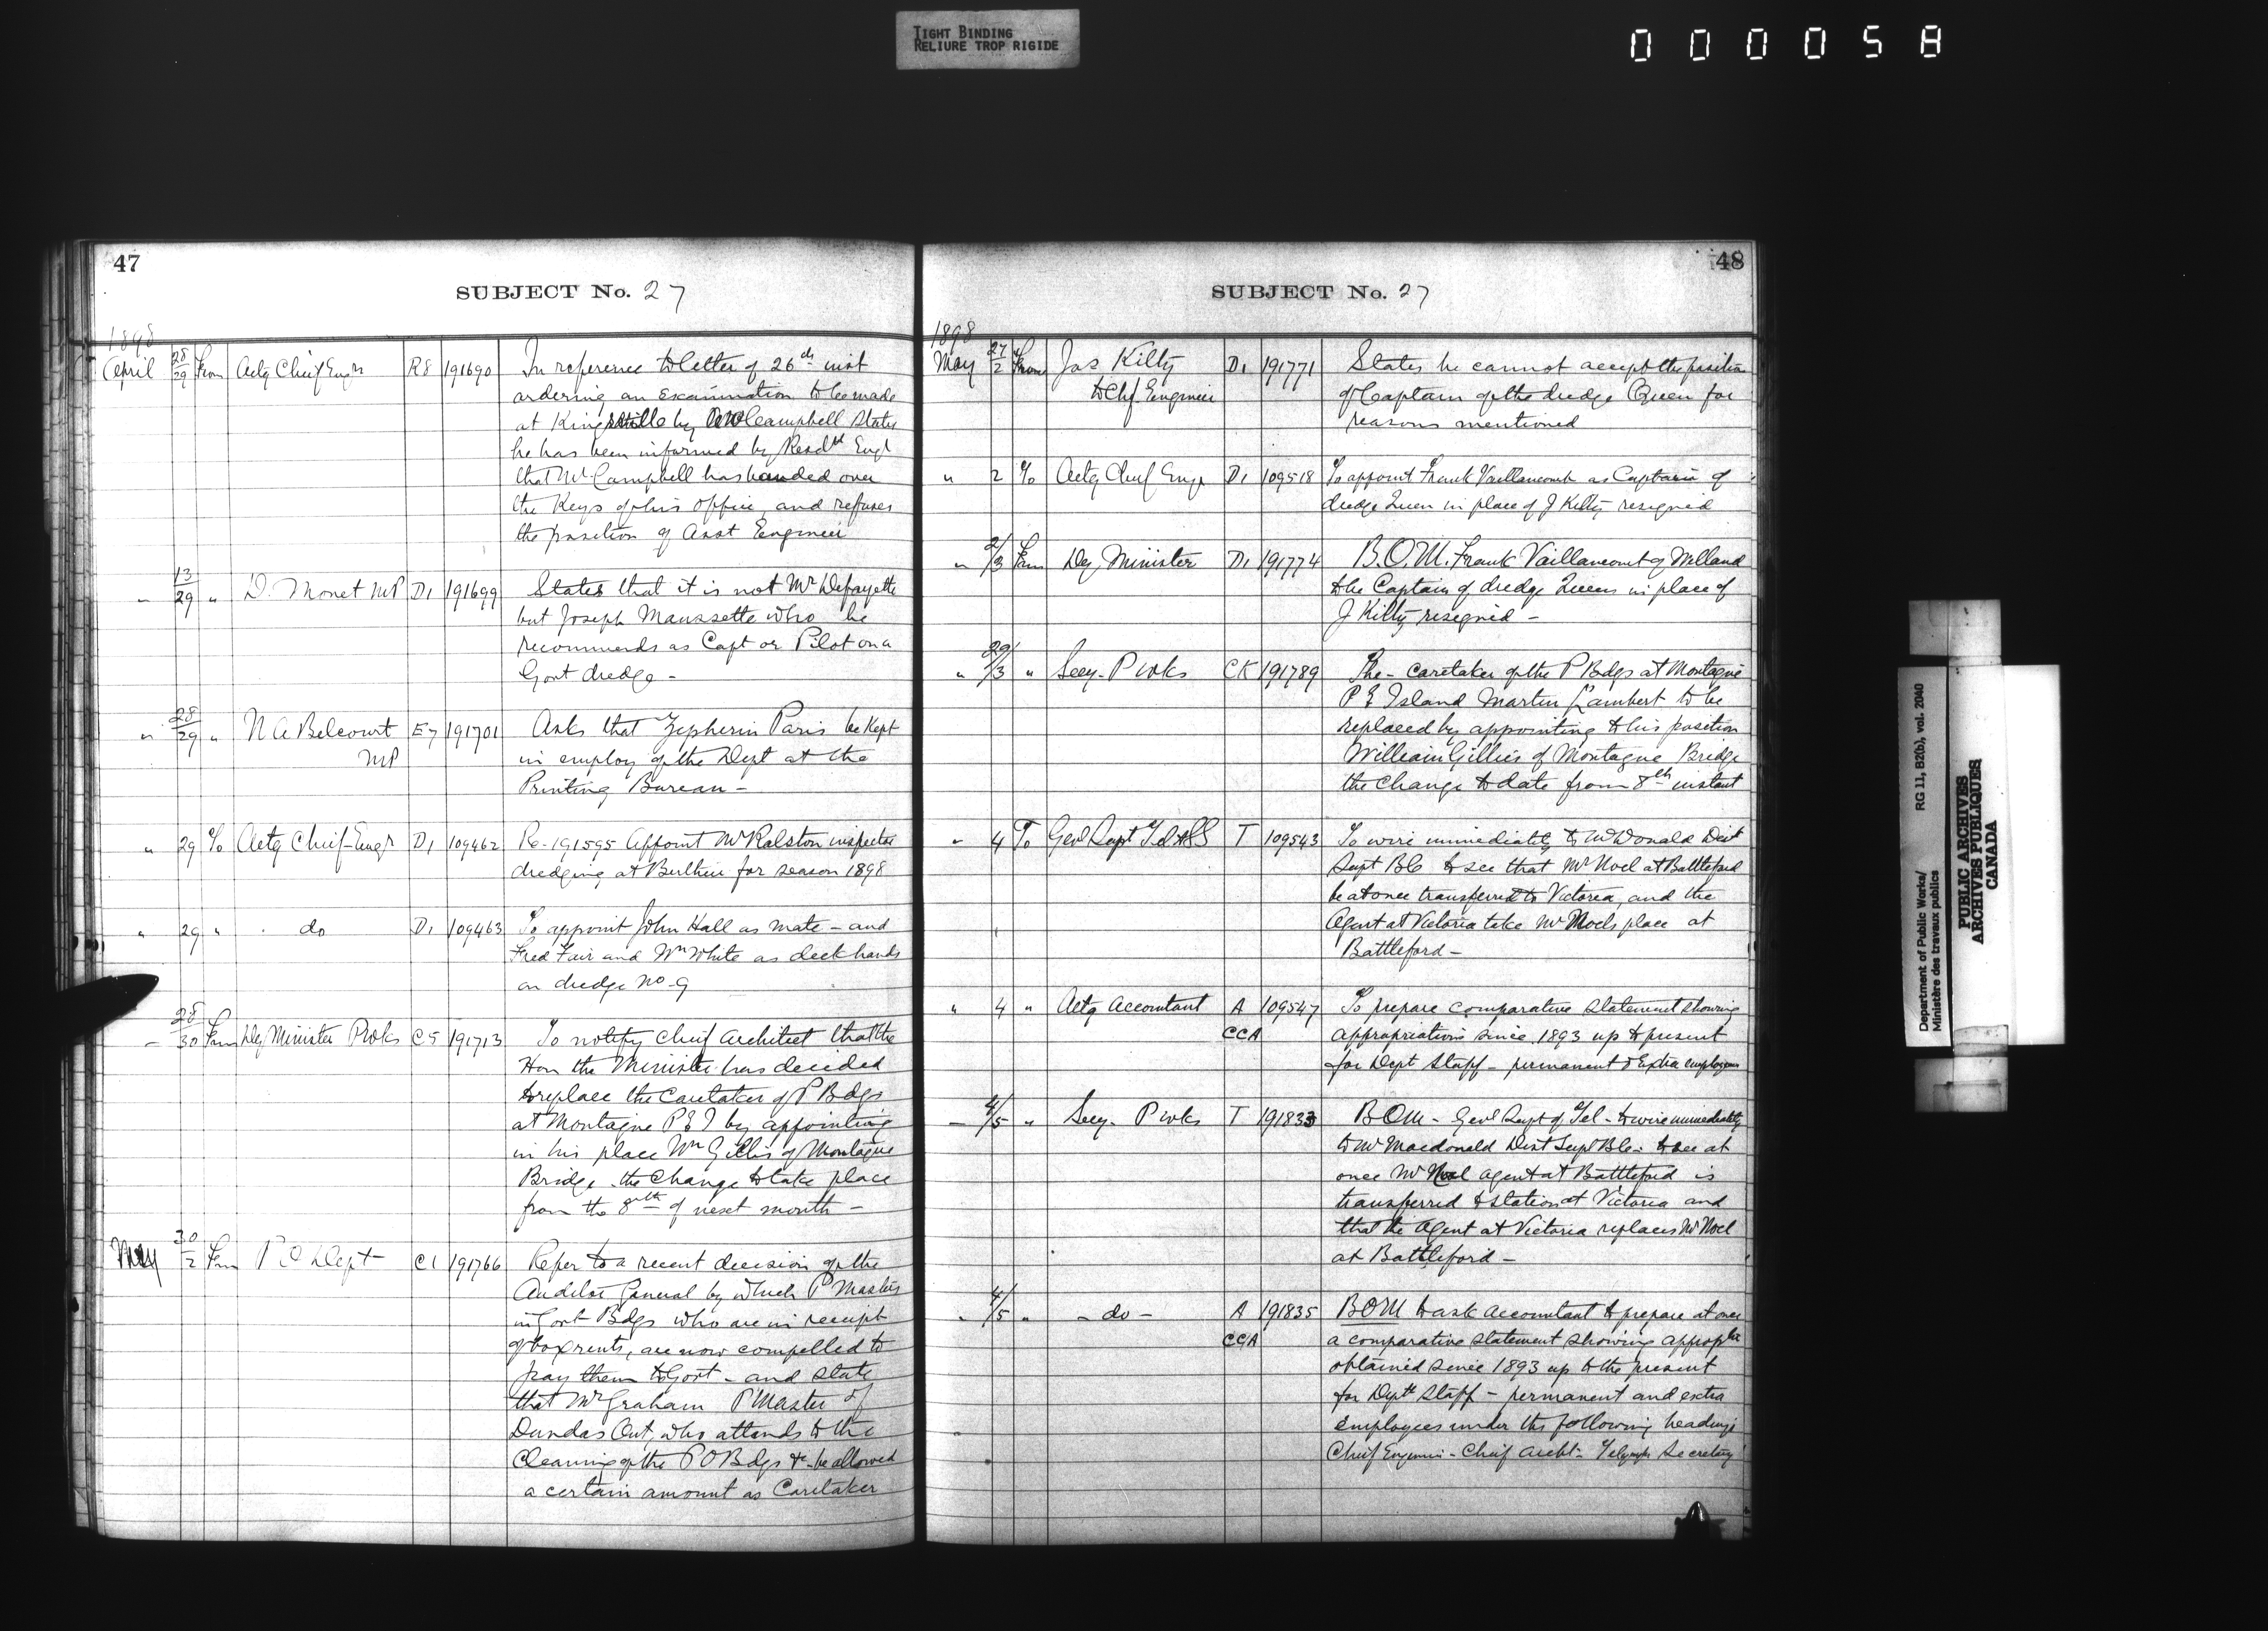 TIGHT BINDING
RELIURE TROP RIGIDE
000058
47
SUBJECT No. 27
1898
April 28/29 From Actg Chief Engr R8 191690 In reference to letter of 26th inst
ordering an examination to be made
at Kingsville by Campbell States
he has been informed by Resdt Engr
that Mr Campbell has handed over
the Keys of his office, and refuses
the position of Asst Engineer
" 13/29 " D. Monet MP D1 191699 States that it is not Mr Defayette
but Joseph Maussette who he
recommends as Capt or Pilot on a
Govt dredge -
" 28/29 " N A Belcourt E7 191701 Asks that Zepherin Paris be Kept
MP in employ of the Dept at the
Printing Bureau -
" 29 To Actg Chief Engr D1 109462 Re- 191595 Appoint Mr Ralston inspector
dredging at Berthier for season 1898
" 29 " do D1 109463 To appoint John Hall as mate - and
Fred Fair and Wm White as deck hands
on dredge No 9
- 28/30 From Dey Minister Pwks C5 191713 To notify Chief Architect that the
Hon the Minister has decided
to replace the Caretaker of P Bdgs
at Montague P E I by appointing
in his place Wm Gillis of Montague
Bridge - the Change to take place
from the 8th of next month -
May 30/2 From P O Dept C1 191766 Refer to a recent decision of the
Auditor General by which P Masters
in Govt Bdgs who are in receipt
of box rents, are now compelled to
pay them to Govt - and state
that Mr Graham P Master of
Dundas Ont, who attends to the
Cleaning of the P O Bdgs &c - be allowed
a certain amount as Caretaker
48
SUBJECT No. 27
1898
May 27/2 From Jas Kilty D1 191771 States he cannot accept the position
to Chf Engineer of Captain of the dredge Queen for
reasons mentioned
" 2 To Actg Chief Engr D1 109518 To appoint Frank Vaillancourt as Captain of
dredge Queen in place of J Kilty resigned
" 2/3 From Dey Minister D1 191774 B.O.M. Frank Vaillancourt of Welland
to be Captain of dredge Queen in place of
J Kilty resigned -
" 29/3 " Secy. Pwks CK 191789 The - caretaker of the P Bdgs at Montague
P E Island Martin Lambert to be
replaced by appointing to his position
William Gillies of Montague Bridge
the Change to date from 8th instant
" 4 To Genl Supt Tel & SS T 109543 To wire immediately to McDonald Dist
Supt BC to see that Mr Noel at Battleford
be at once transferred to Victoria, and the
Agent at Victoria take Mr Noels place at
Battleford -
" 4 " Actg Accountant A 109547 To prepare comparative Statement showing
CCA appropriations since 1893 up to present
for Dept Staff - permanent & Extra employees
- 4/5 " Secy. Pwks T 191833 BOM - Genl Supt of Tel - to wire immediately
to Mr Macdonald Dist Supt BC - to see at
once Mr Noel agent at Battleford is
transferred to station at Victoria and
that the Agent at Victoria replaces Mr Noel
at Battleford -
" 4/5 " - do - A 191835 BOM to ask Accountant to prepare at once
CCA a comparative statement showing
obtained since 1893 up to the present
for Dept Staff - permanent and extra
Employees under the following headings
Chief Engineer - Chief Archt - Telegraphs Secretary
Department of Public Works/ RG 11, B2(b), vol. 2040
Ministère des travaux publics
PUBLIC ARCHIVES
ARCHIVES PUBLIQUES
CANADA